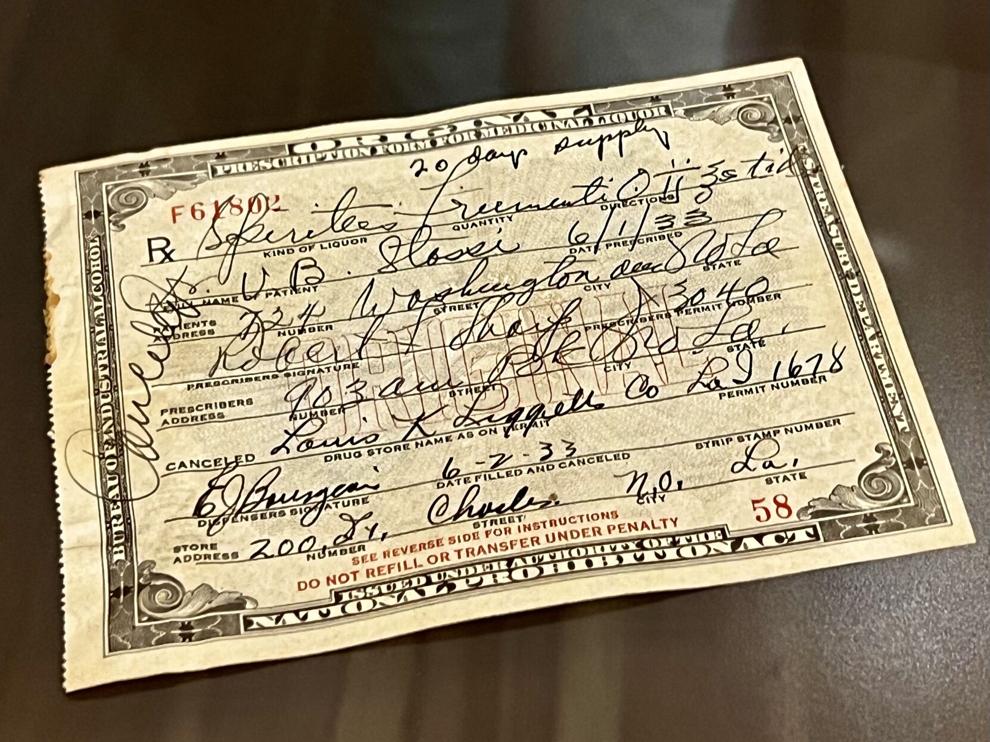 ORIGINAL
PRESCRIPTION FORM FOR MEDICINAL LIQUOR
20 day supply
F61802
Rx Spiritus Frumenti
KIND OF LIQUOR QUANTITY DIRECTIONS
V. B. 6/1/33
FULL NAME OF PATIENT DATE PRESCRIBED
724 Washington La
PATIENTS ADDRESS NUMBER STREET CITY STATE
Robert F 3040
PRESCRIBERS SIGNATURE PRESCRIBERS PERMIT NUMBER
903 La.
PRESCRIBERS ADDRESS NUMBER STREET CITY STATE
ORIGINAL
Louis K Liggetts Co La I 1678
DRUG STORE NAME AS ON PERMIT PERMIT NUMBER
CANCELED 6-2-33
DATE FILLED AND CANCELED STRIP STAMP NUMBER
EJ Bourgeois
DISPENSERS SIGNATURE
STORE ADDRESS 200 St. Charles N.O. La.
NUMBER STREET CITY STATE
SEE REVERSE SIDE FOR INSTRUCTIONS
58
DO NOT REFILL OR TRANSFER UNDER PENALTY
ISSUED UNDER AUTHORITY OF THE
NATIONAL PROHIBITION ACT
BUREAU OF INDUSTRIAL ALCOHOL
Canceled